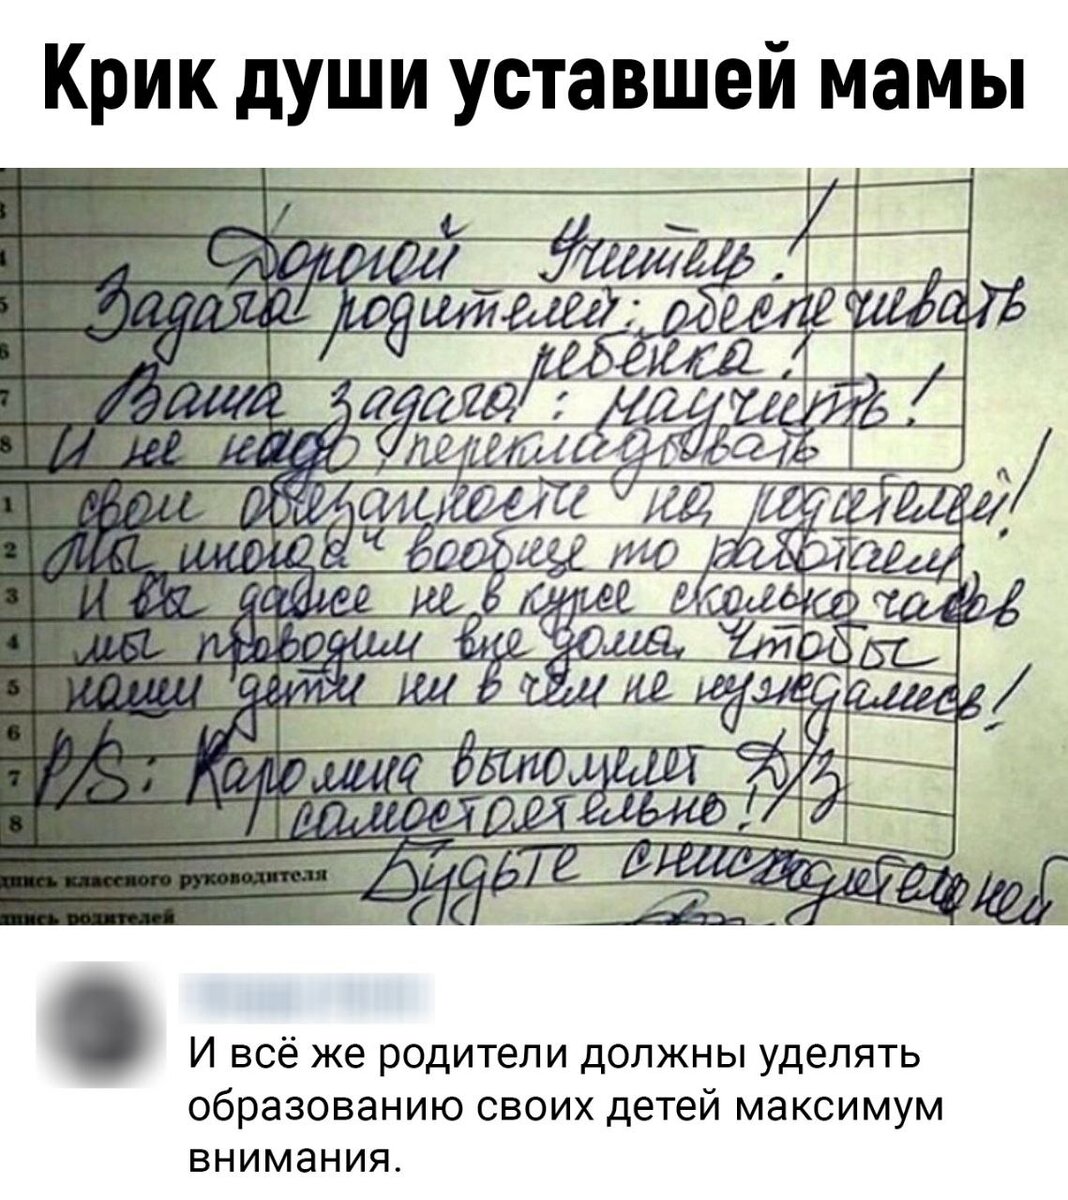 Крик души уставшей мамы
Дорогой Учитель!
Задача родителей: обеспечивать
ребёнка!
Ваша задача: научить!
И не надо перекладовать
свои обязанности на родителей!
Мы иногда вообще то работаем,
И вы даже не в курсе сколько часов
мы проводим вне дома, Чтобы
наши дети ни в чём не нуждались!
P/S: Каролина выполняет Д/З
самостоятельно!
Будьте снисходительней
3
4
5
6
7
8
1
2
3
4
5
6
7
8
пись классного руководителя
пись родителей
И всё же родители должны уделять
образованию своих детей максимум
внимания.